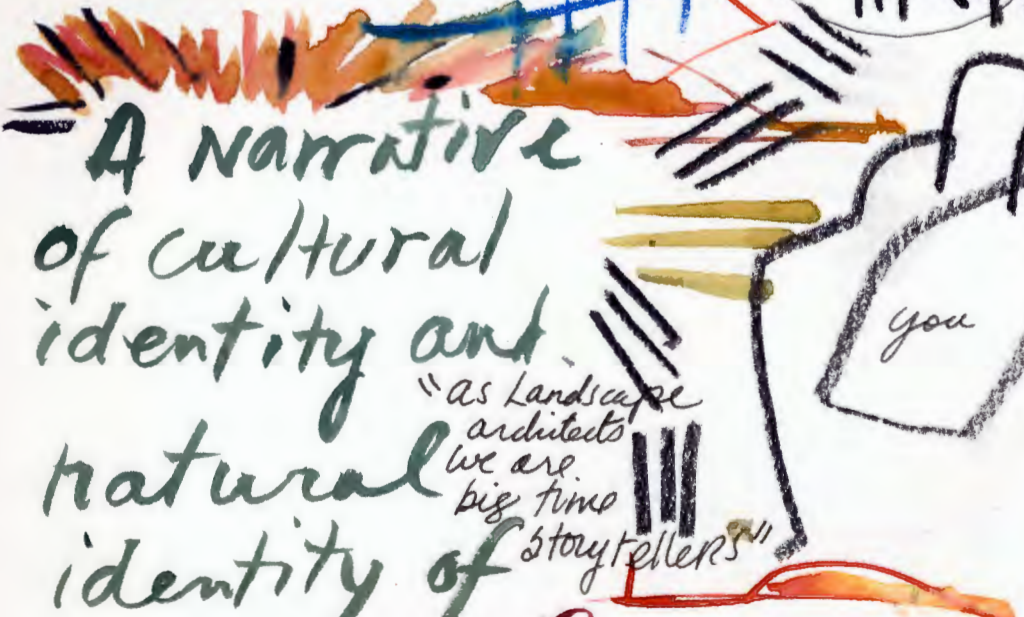 A Narrative
of cultural
identity and
natural
identity of
"as Landscape
architects
we are
big time
storytellers"
you